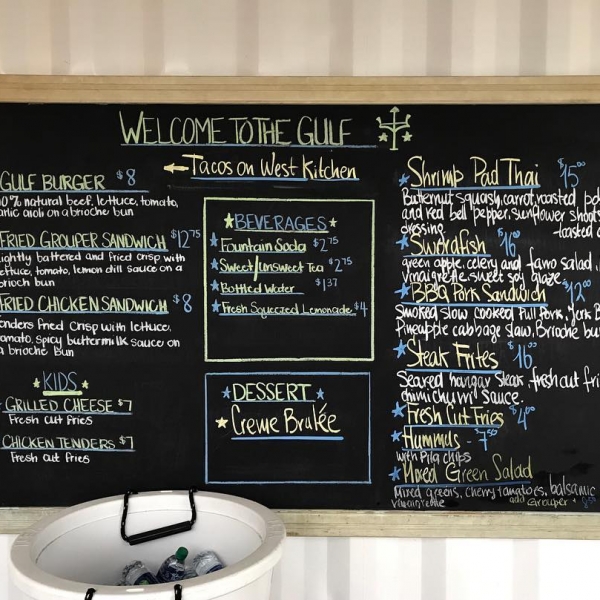 WELCOME TO THE GULF
Tacos on West Kitchen
GULF BURGER $8
natural beef, lettuce, tomato,
garlic aioli on a brioche bun
FRIED GROUPER SANDWICH $12.75
lightly battered and fried crisp with
lettuce, tomato, lemon dill sauce on a
brioch bun
FRIED CHICKEN SANDWICH $8
tenders fried crisp with lettuce,
tomato, spicy buttermilk sauce on
a brioche bun
KIDS
GRILLED CHEESE $7
Fresh Cut fries
CHICKEN TENDERS $7
Fresh Cut fries
BEVERAGES
Fountain Soda $2.75
Sweet/Unsweet Tea $2.75
Bottled Water $1.37
Fresh Squeezed Lemonade $4
DESSERT
Creme Brulée
Shrimp Pad Thai $15
Butternut squash, carrot, roasted
and red bell pepper, sunflower shoots
dressing
Swordfish $16
green apple, celery and farro salad,
vinaigrette, sweet soy glaze
BBQ Pork Sandwich $12.00
Smoked slow cooked Pull Pork,
Pineapple cabbage slaw, Brioche bun
Steak Frites $16
Seared hangar steak, fresh cut
chimichurri sauce.
Fresh Cut Fries $4.00
Hummus - 7.50
with Pita chips
Mixed Green Salad
Mixed greens, cherry tomatoes, balsamic
vinaigrette add Grouper